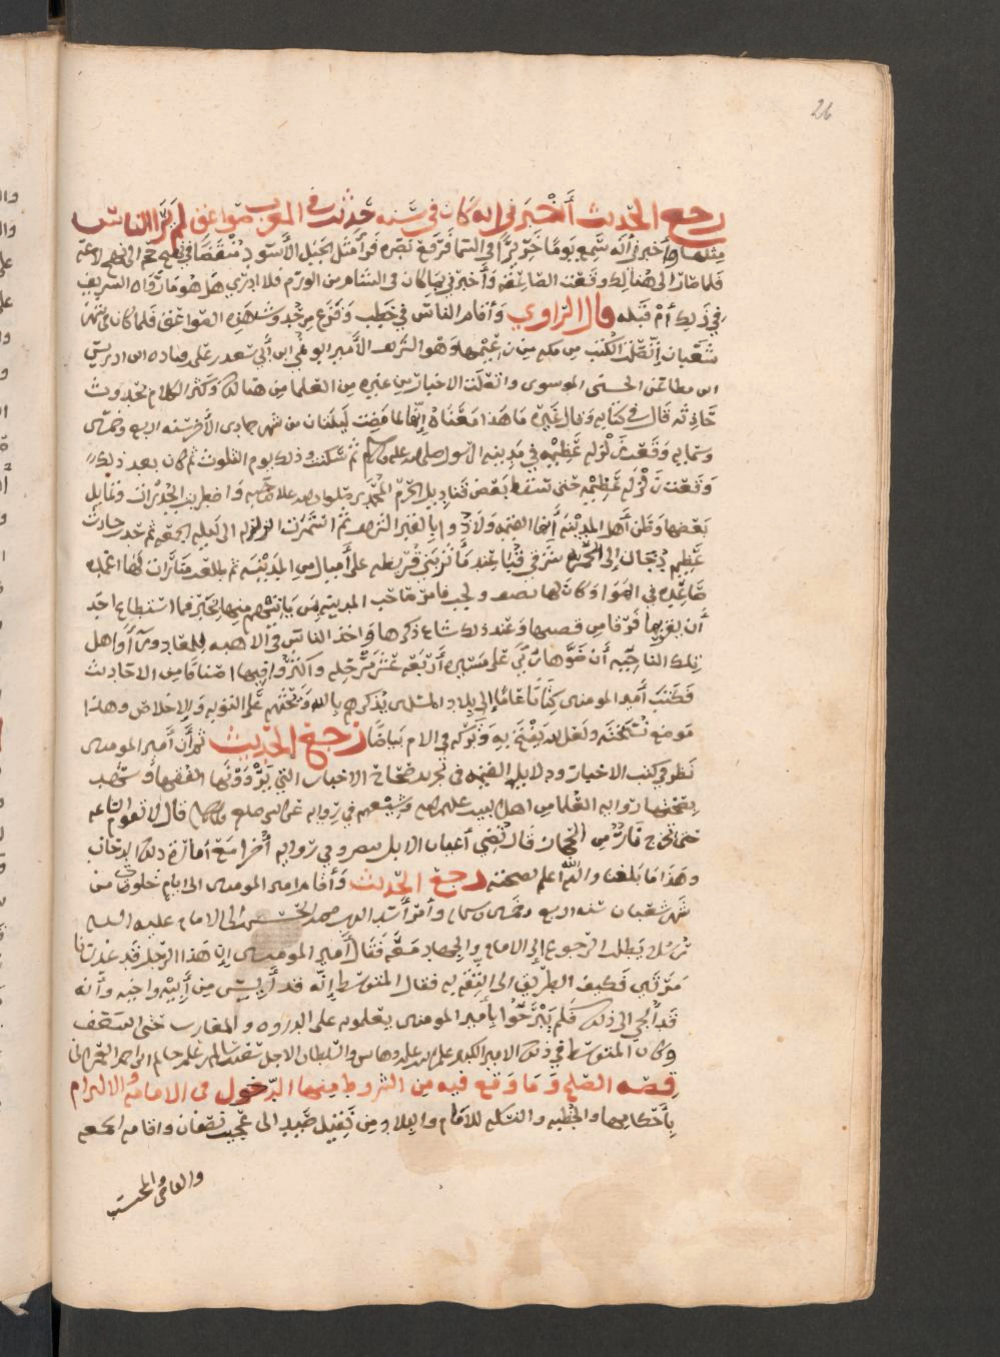 26
رجع الحديث أخبرني انه كان في سنه حدثت في المغرب صواعق لم ير الناس
مثلها وأخبرني أنه سمع يوما خريرا في السما فرفع بصره فرأ مثل الجبل الأسود منقضا في
فلما صار الى هنالك وقعت الصاعقه وأخبرني بما كان في الشام من الورم فلا ادري هل هو مما رواه الشريف
في ذلك أم قبله قال الراوي وأقام الناس في خطب وفزع من حدوث هذه الصواعق فلما كان في شهر
شعبان اتصلت الكتب من مكه من زعيمها وهو الشريف الأمير ابو نمي ابن أبي سعد بن علي بن قتاده ابن ادريس
ابن مطاعن الحسني الموسوي واتصلت الاخبار من غيره من العلما من هنالك وكثر الكلام بحدوث
حادثه قال في كتابه وقال غيره ما هذا معناه إنها لما مضت ليلتان من شهر جمادى الأخر سنه اربع وخمسين
وستمايه وقعت زلزله عظيمه في مدينه الرسول صلى الله عليه وسلم ثم سكنت وذلك يوم الثلوث ثم كان بعد ذلك
وقعت زلزله عظيمه حتى سقط بعض قناديل الحرم المحمدي صلوات الله على صاحبه واضطربت الجدرات وتمايل
بعضها وظن أهل المدينه أنها القيمه ولاذوا بالقبر الشريف ثم استمرت الزلزله الى ليله الجمعه ثم حدث حادث
عظيم دخان إلى شرقي قبا عند ما قريظه على أميال من المدينه ثم طلعت منارات لها اعمده
صاعده في الهوا وكان لها ولهب فامر صاحب المدينه من ياتيهم منها بخبر فما استطاع احد
أن يقربها فرقا من قصبها وعند ذلك شاع ذكرها واخذ الناس في الاهبه للمعاد ورأوا اهل
تلك الناحيه أن ضوها رئي على مسيره أربعه عشر مرحله واكثر وافيها اصنافا من الاحاديث
فكتب أمير المومنين كتابا عاما إلى بلاد المسلمين يذكرهم بالله ويحثهم على التوبه والاخلاص وهذا
موضع نسخته ولعل الله يفتح به وتركه في الام بياضا رجع الحديث ثم أن أمير المومنين
نظر في كتب الاخبار ودلايل القيمه في تجريد صحاح الاخبار التي يروونها الفقها وشهد
بصحتها روايه العلما من اهل البيت عليهم السلم وشيعهم في روايه عن النبي صلعم قال لا تقوم الساعه
حتى تخرج نار من الحجاز قال تضي أعناق الابل ببصرو في روايه أخرا مع أماره ذلك الدخان
وهذا ما بلغنا والله أعلم بصحته رجع الحديث وأقام امير المومنين الى ايام خلون من
شهر شعبان سنه اربع وخمسين وستمايه وأمر أسد الدين محمد بن الحسن الى الامام عليه السلم
رسل يطلب الرجوع إلى الامام والجهاد معه فقال أمير المومنين ان هذا الرجل قد غدر بنا
مرتين فكيف الطريق الى الثقه به فقال المتوسط إنه قد أيس من أبيه واخيه وأنه
قد ألجي الى ذلك فلم يبرحوا بأمير المومنين يعملونه على الذروه والغارب حتى اسعف
وكان المتوسط في ذلك الامير الكبير علم الدين علي بن وهاس والسلطان الاجل
قصه الصلح وما وقع فيه من الشروط منها الدخول في الامامه والالتزام
بأحكامها والخطبه والسكه للامام والبلاد من نقيل صيد الى عجيب نصفان واقامه الجمعه
والقاضي والمحتسب